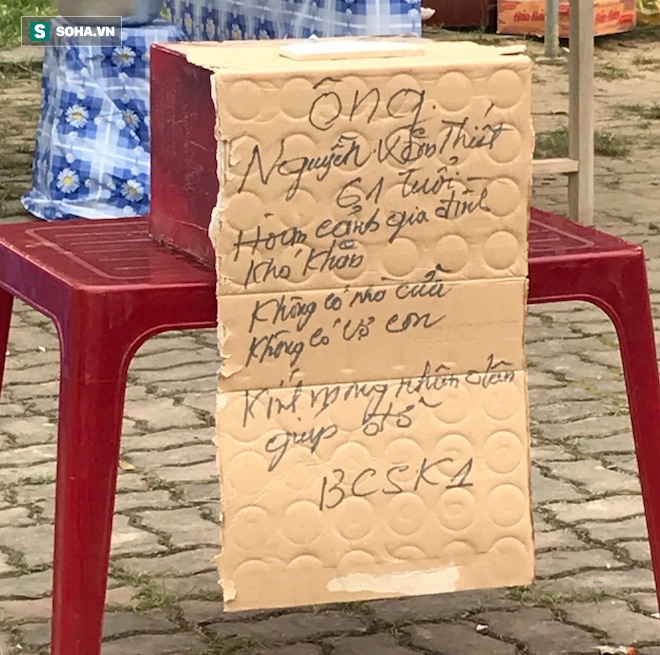 S SOHA.VN
Hảo Hảo
Ông
Nguyễn Văn Thiết
61 tuổi
Hoàn cảnh gia đình
khó khăn
Không có nhà cửa
Không có vợ con
Kính mong nhân dân
giúp đỡ
BCSK1